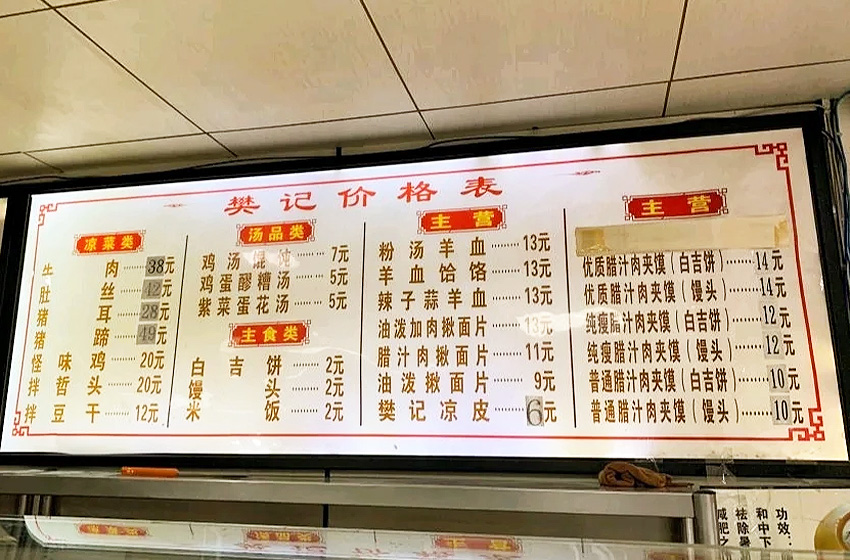 樊记价格表
凉菜类
牛肉 38元
肚丝 42元
猪耳 28元
猪蹄 49元
怪味鸡 20元
拌哲头 20元
拌豆干 12元
汤品类
鸡汤馄饨 7元
鸡蛋醪糟汤 5元
紫菜蛋花汤 5元
主食类
白吉饼 2元
馒头 2元
米饭 2元
主营
粉汤羊血 13元
羊血饸饹 13元
辣子蒜羊血 13元
油泼加肉揪面片 13元
腊汁肉揪面片 11元
油泼揪面片 9元
樊记凉皮 6元
主营
优质腊汁肉夹馍(白吉饼) 14元
优质腊汁肉夹馍(馒头) 14元
纯瘦腊汁肉夹馍(白吉饼) 12元
纯瘦腊汁肉夹馍(馒头) 12元
普通腊汁肉夹馍(白吉饼) 10元
普通腊汁肉夹馍(馒头) 10元
功效：
和中下
祛除暑
咸肥之